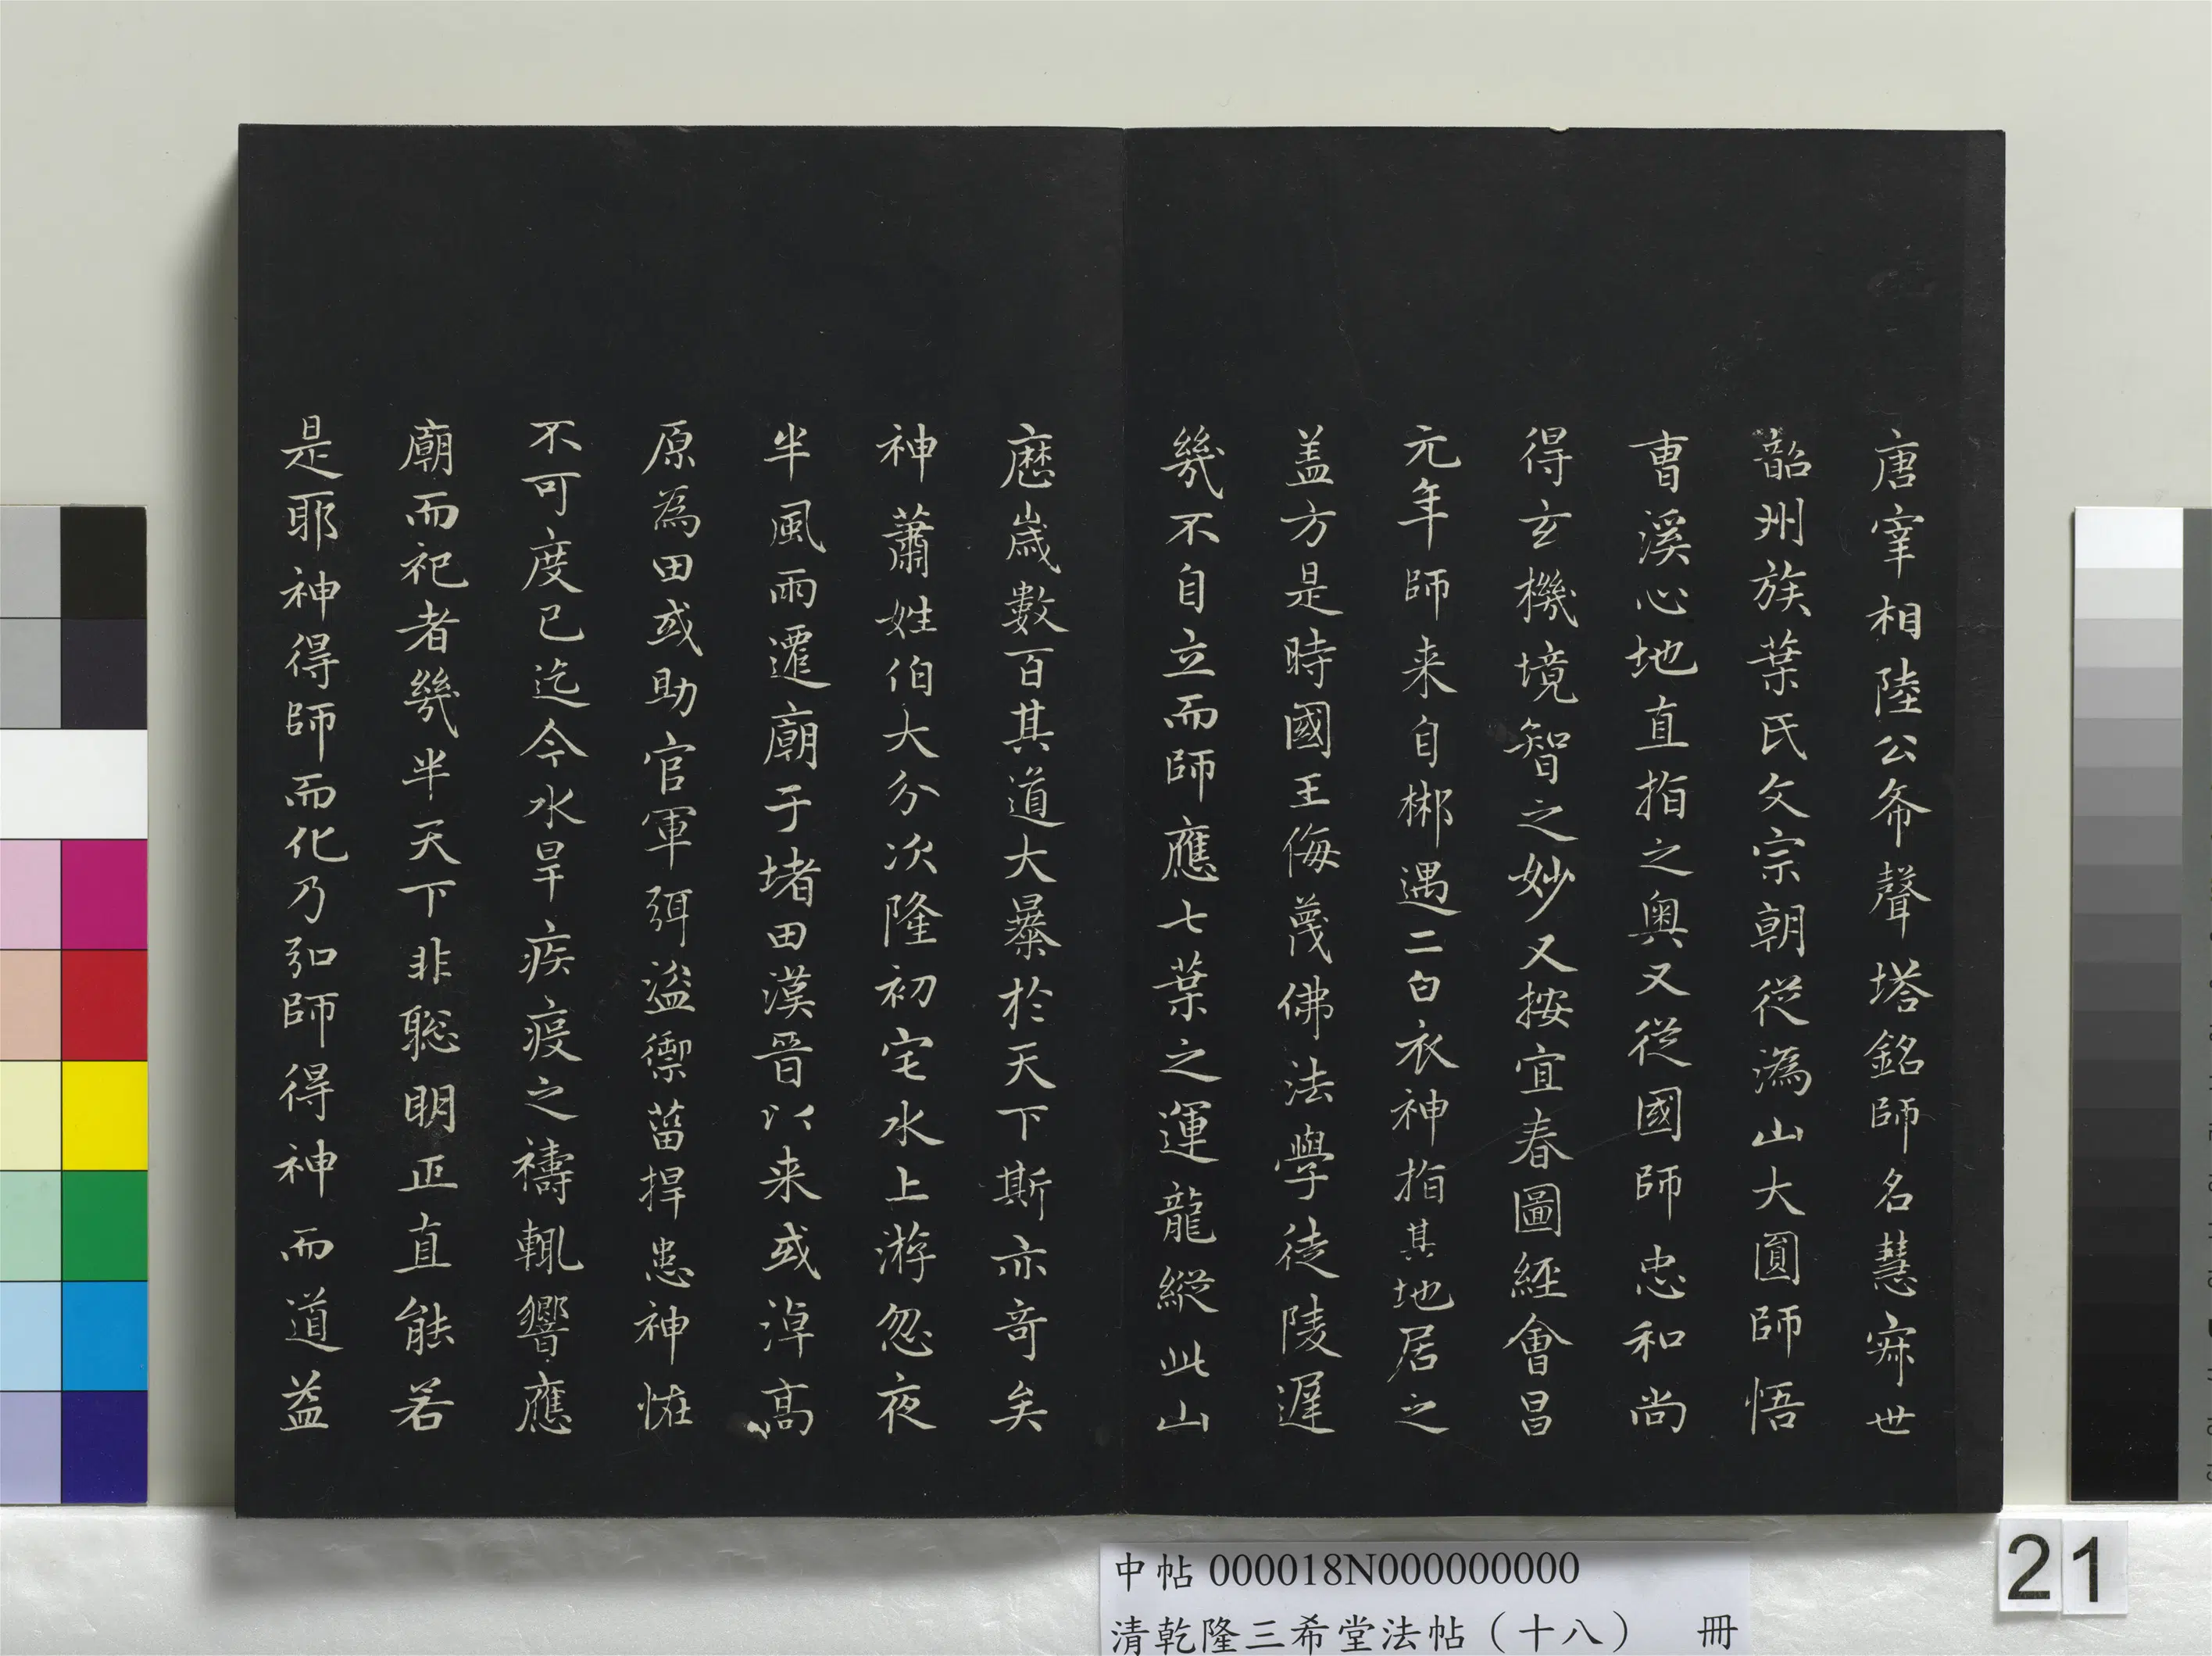 唐宰相陸公希聲塔銘師名慧寂世
韶州族葉氏文宗朝從溈山大圓師悟
曹溪心地直指之奥又從國師忠和尚
得玄機境智之妙又按宜春圖經會昌
元年師来自郴遇二白衣神指其地居之
盖方是時國王侮蔑佛法學徒陵遲
幾不自立而師應七葉之運龍縱此山
歷歲數百其道大暴於天下斯亦奇矣
神蕭姓伯大分次隆初宅水上游忽夜
半風雨遷廟于堵田漢晉以来或淖高
原為田或助官軍弭盜禦菑捍患神恠
不可度已迄今水旱疾疫之禱輒響應
廟而祀者幾半天下非聡明正直能若
是耶神得師而化乃弘師得神而道益
中帖 000018N000000000
清乾隆三希堂法帖（十八） 冊
21